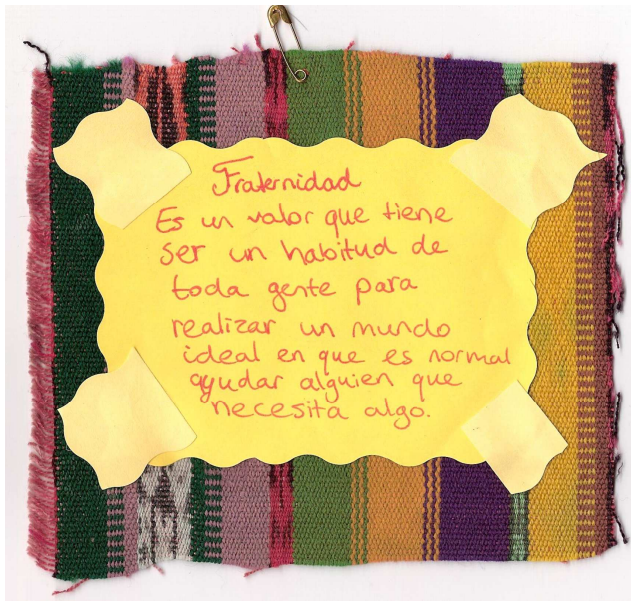 Fraternidad
Es un valor que tiene
ser un habitud de
toda gente para
realizar un mundo
ideal en que es normal
ayudar alguien que
necesita algo.